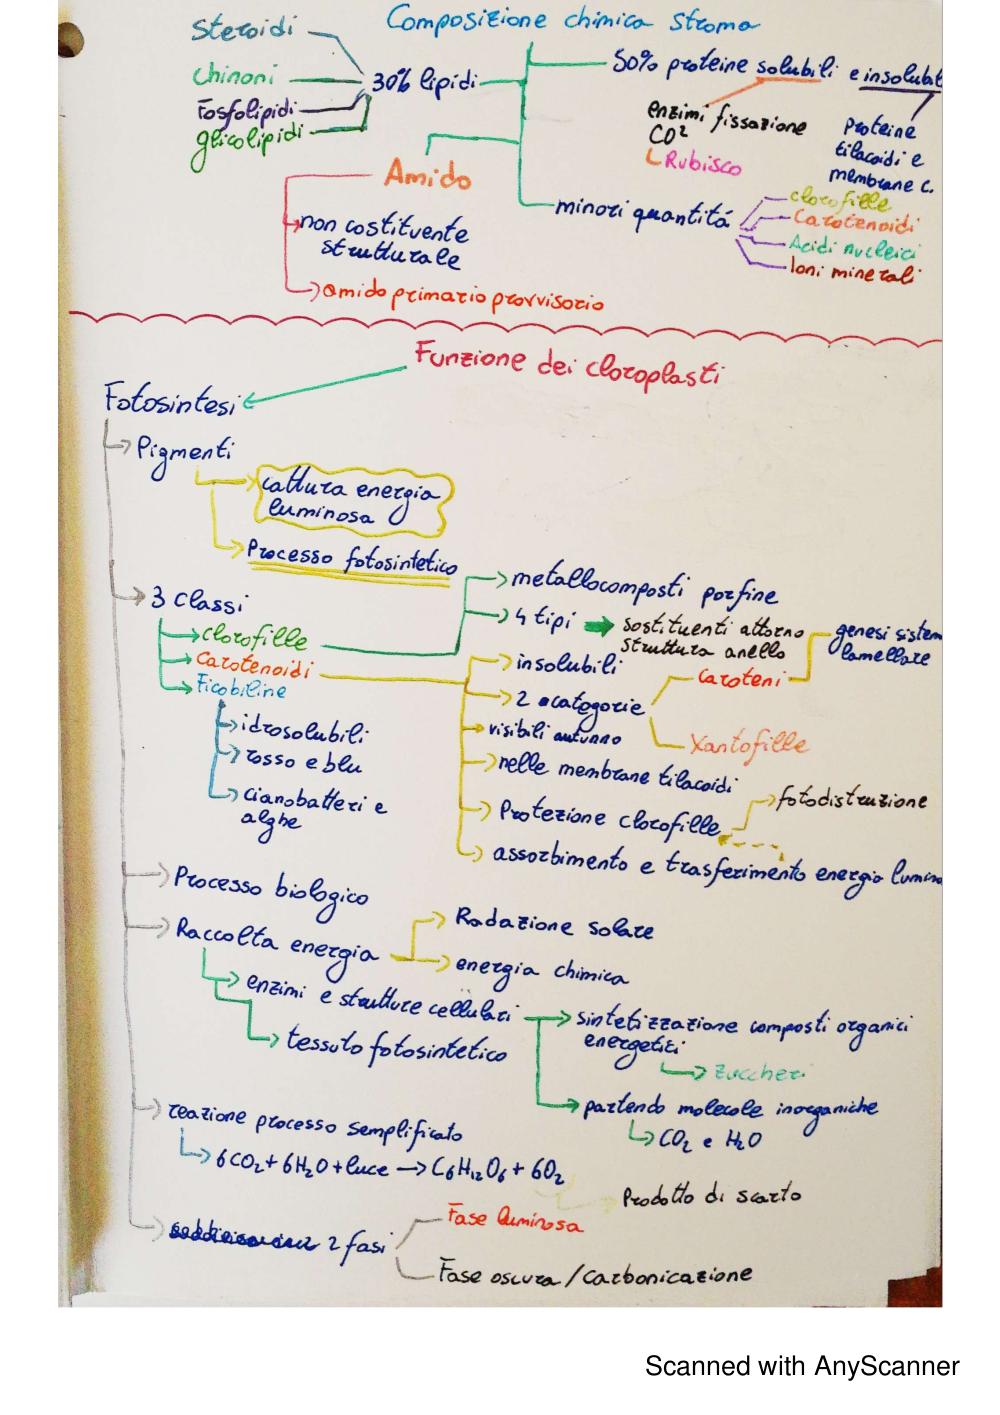 Composizione chimica stroma
Steroidi
Chinoni
Fosfolipidi
glicolipidi
30% lipidi
50% proteine solubili e insolubil
enzimi fissazione
CO²
Rubisco
Proteine
tilacoidi e
membrane c.
Amido
non costituente
strutturale
amido primario provvisorio
minori quantitá
clorofille
Carotenoidi
Acidi nucleici
Ioni minerali
Funzione dei cloroplasti
Fotosintesi
Pigmenti
cattura energia
luminosa
Processo fotosintetico
3 Classi
clorofille
Carotenoidi
Ficobiline
idrosolubili
rosso e blu
cianobatteri e
alghe
metallocomposti porfine
4 tipi
sostituenti attorno
struttura anello
insolubili
2 catogorie
Caroteni
genesi sistem
lamellare
Xantofille
visibili autunno
nelle membrane tilacoidi
Protezione clorofille
fotodistruzione
assorbimento e trasferimento energia lumino
Processo biologico
Raccolta energia
Radazione solare
energia chimica
enzimi e strutture cellulari
tessuto fotosintetico
sintetizzazione composti organici
energetici
Zuccheri
partendo molecole inorganiche
CO₂ e H₂O
reazione processo semplificato
6CO₂ + 6H₂O + luce → C₆H₁₂O₆ + 6O₂
Prodotto di scarto
2 fasi
Fase luminosa
Fase oscura / carbonicazione
Scanned with AnyScanner